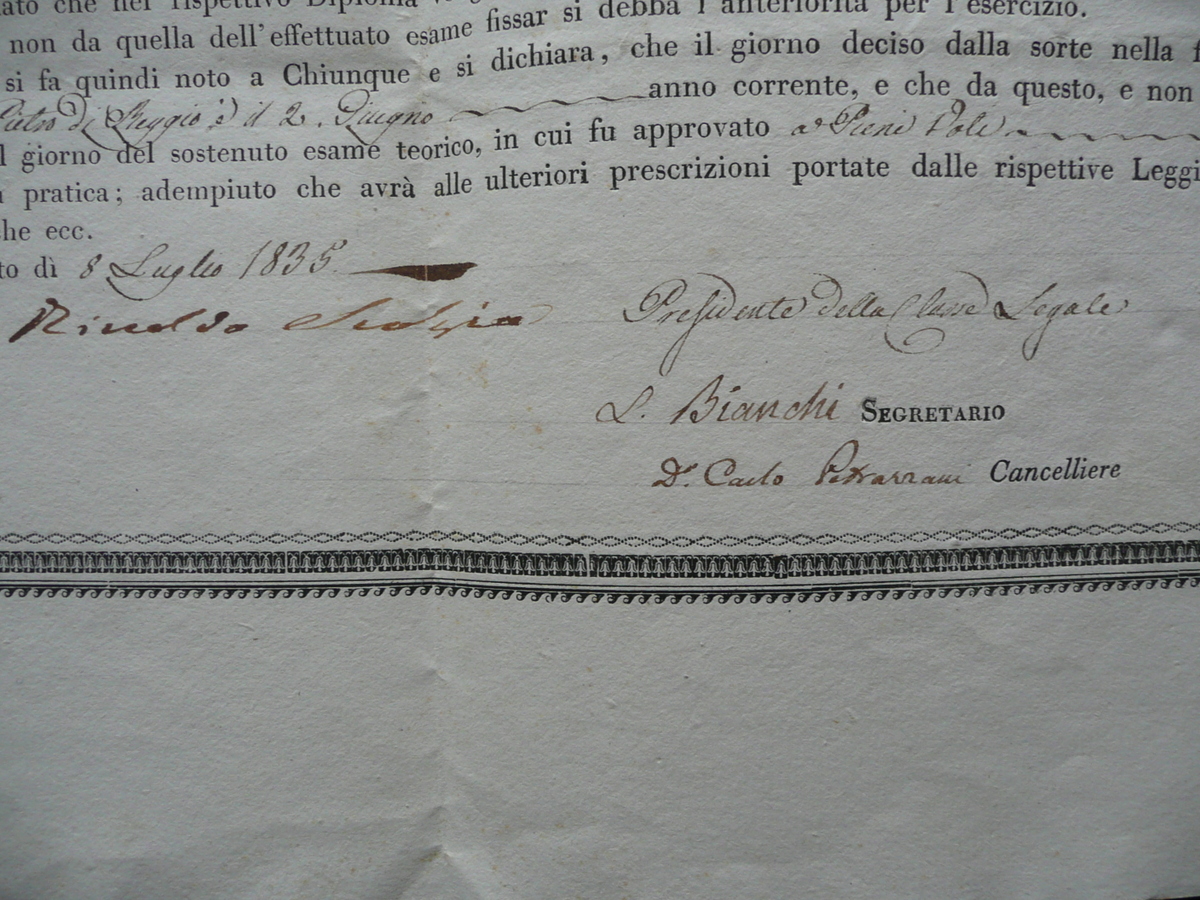 ato che nel rispettivo Diploma
non da quella dell'effettuato esame fissar si debba l'anteriorità per l'esercizio.
si fa quindi noto a Chiunque e si dichiara, che il giorno deciso dalla sorte nella f
di Reggio è il 2. Giugno anno corrente, e che da questo, e non
l giorno del sostenuto esame teorico, in cui fu approvato a Pieni Voti
pratica; adempiuto che avrà alle ulteriori prescrizioni portate dalle rispettive Leggi
che ecc.
to dì 8 Luglio 1835
Presidente della Classe Legale
L. Bianchi SEGRETARIO
Dr. Carlo Cancelliere